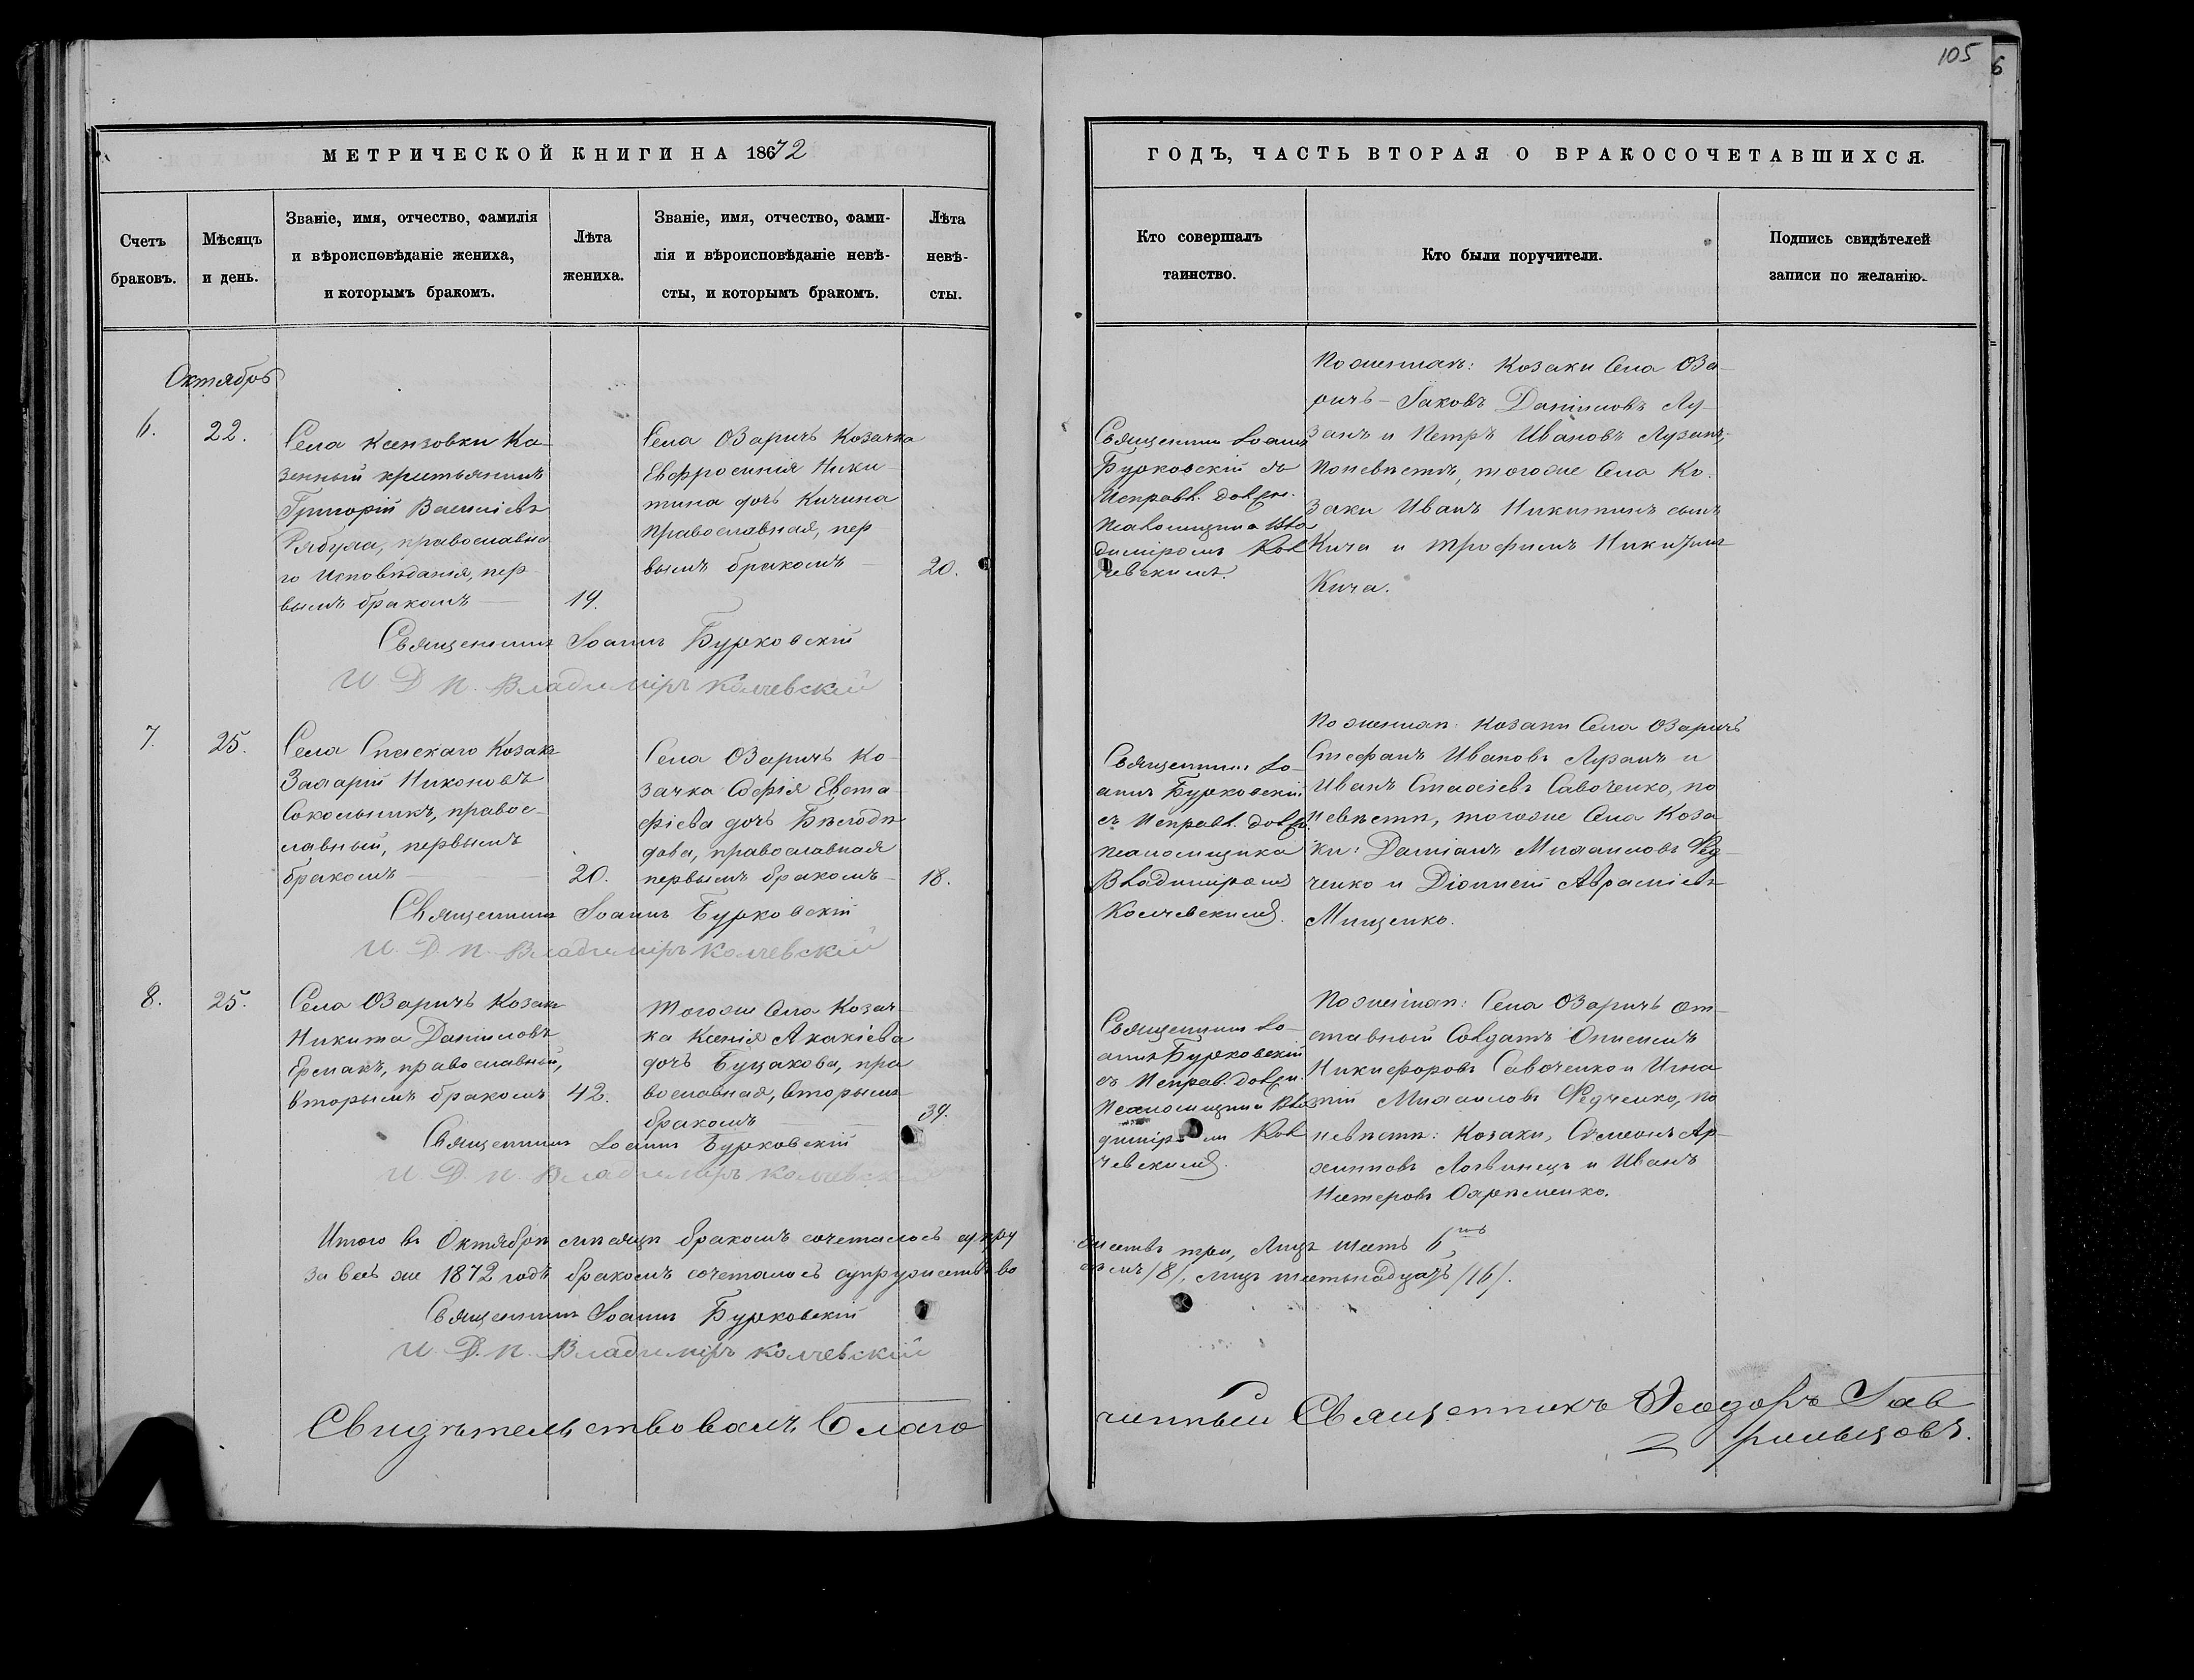 105
6
МЕТРИЧЕСКОЙ КНИГИ НА 1872
ГОДЪ, ЧАСТЬ ВТОРАЯ О БРАКОСОЧЕТАВШИХСЯ.
Счетъ
браковъ.
Мѣсяцъ
и день.
Званіе, имя, отчество, фамилія
и вѣроисповѣданіе жениха,
и которымъ бракомъ.
Лѣта
жениха.
Званіе, имя, отчество, фами-
лія и вѣроисповѣданіе невѣ-
сты, и которымъ бракомъ.
Лѣта
невѣ-
сты.
Кто совершалъ
таинство.
Кто были поручители.
Подпись свидѣтелей
записи по желанію.
Октябрь
6.
22.
Села Ксензовки Ка-
зенный
Григорій Василіевъ
Рябуха, православна
го исповѣданія, пер-
вымъ бракомъ
19.
Села Озаричъ Козачка
Евфросинія Ники-
тина дочь Кичина
православная, пер-
вымъ бракомъ
20.
Священникъ Іоаннъ
Бурковскій съ
Исправл. должн.
псаломщика Вла
диміромъ Кол
чевскимъ.
По женихѣ: Козаки Села Оза-
ричъ - Іаковъ Даниловъ Лу-
занъ и Петръ Ивановъ Лузанъ,
по невѣстѣ, тогоже Села Ко-
заки Иванъ Никитинъ сынъ
Кича и Трофимъ Никитинъ
Кича.
Священникъ Іоаннъ Бурковскій
И. Д. П. Владиміръ Колчевскій
7.
25.
Села Спаскаго Козакъ
Захарій Никоновъ
Сокольникъ, правос-
лавный, первымъ
бракомъ
20.
Села Озаричъ Ко-
зачка Софія Евста-
фіева дочь Бѣлодѣ-
дова, православная
первымъ бракомъ
18.
Священникъ Іо-
аннъ Бурковскій
съ Исправл. должн.
псаломщика
Владиміромъ
Колчевскимъ.
По женихѣ: Козаки Села Озаричъ
Стефанъ Ивановъ Лузанъ и
Иванъ Савоченко, по
невѣстѣ, тогоже Села Коза-
ки: Даміанъ Михаиловъ Фед-
ченко и Діонисій Авраміевъ
Мищенко.
Священникъ Іоаннъ Бурковскій
И. Д. П. Владиміръ Колчевскій
8.
25.
Села Озаричъ Козакъ
Никита Даниловъ
Ермакъ, православный,
вторымъ бракомъ
42.
Тогоже Села Козач-
ка Ксенія Акакіева
дочь Буцакова, пра
вославная, вторымъ
бракомъ
39.
Священникъ Іо-
аннъ Бурковскій
съ Исправ. должн.
Псаломщика Вла
диміромъ Кол
чевскимъ.
По женихѣ: Села Озаричъ От-
ставный Солдатъ
Никифоровъ Савоченко и Игна-
тій Михаиловъ Федченко, по
невѣстѣ: Козаки, Симеонъ Ар-
хиповъ Логвинецъ и Иванъ
Несторовъ
Священникъ Іоаннъ Бурковскій
И. Д. П. Владиміръ Колчевскій
Итого въ Октябрѣ мѣсяцѣ бракомъ сочеталось супру
жествъ три, Лицъ шесть 6ть
за весь же 1872 годъ бракомъ сочеталось супружествъ во
семь /8/, лицъ шестьнадцать /16/.
Священникъ Іоаннъ Бурковскій
И. Д. П. Владиміръ Колчевскій
Свидѣтельствовалъ Благо
чинный Священникъ Ѳеодоръ Гав
рильцовъ.